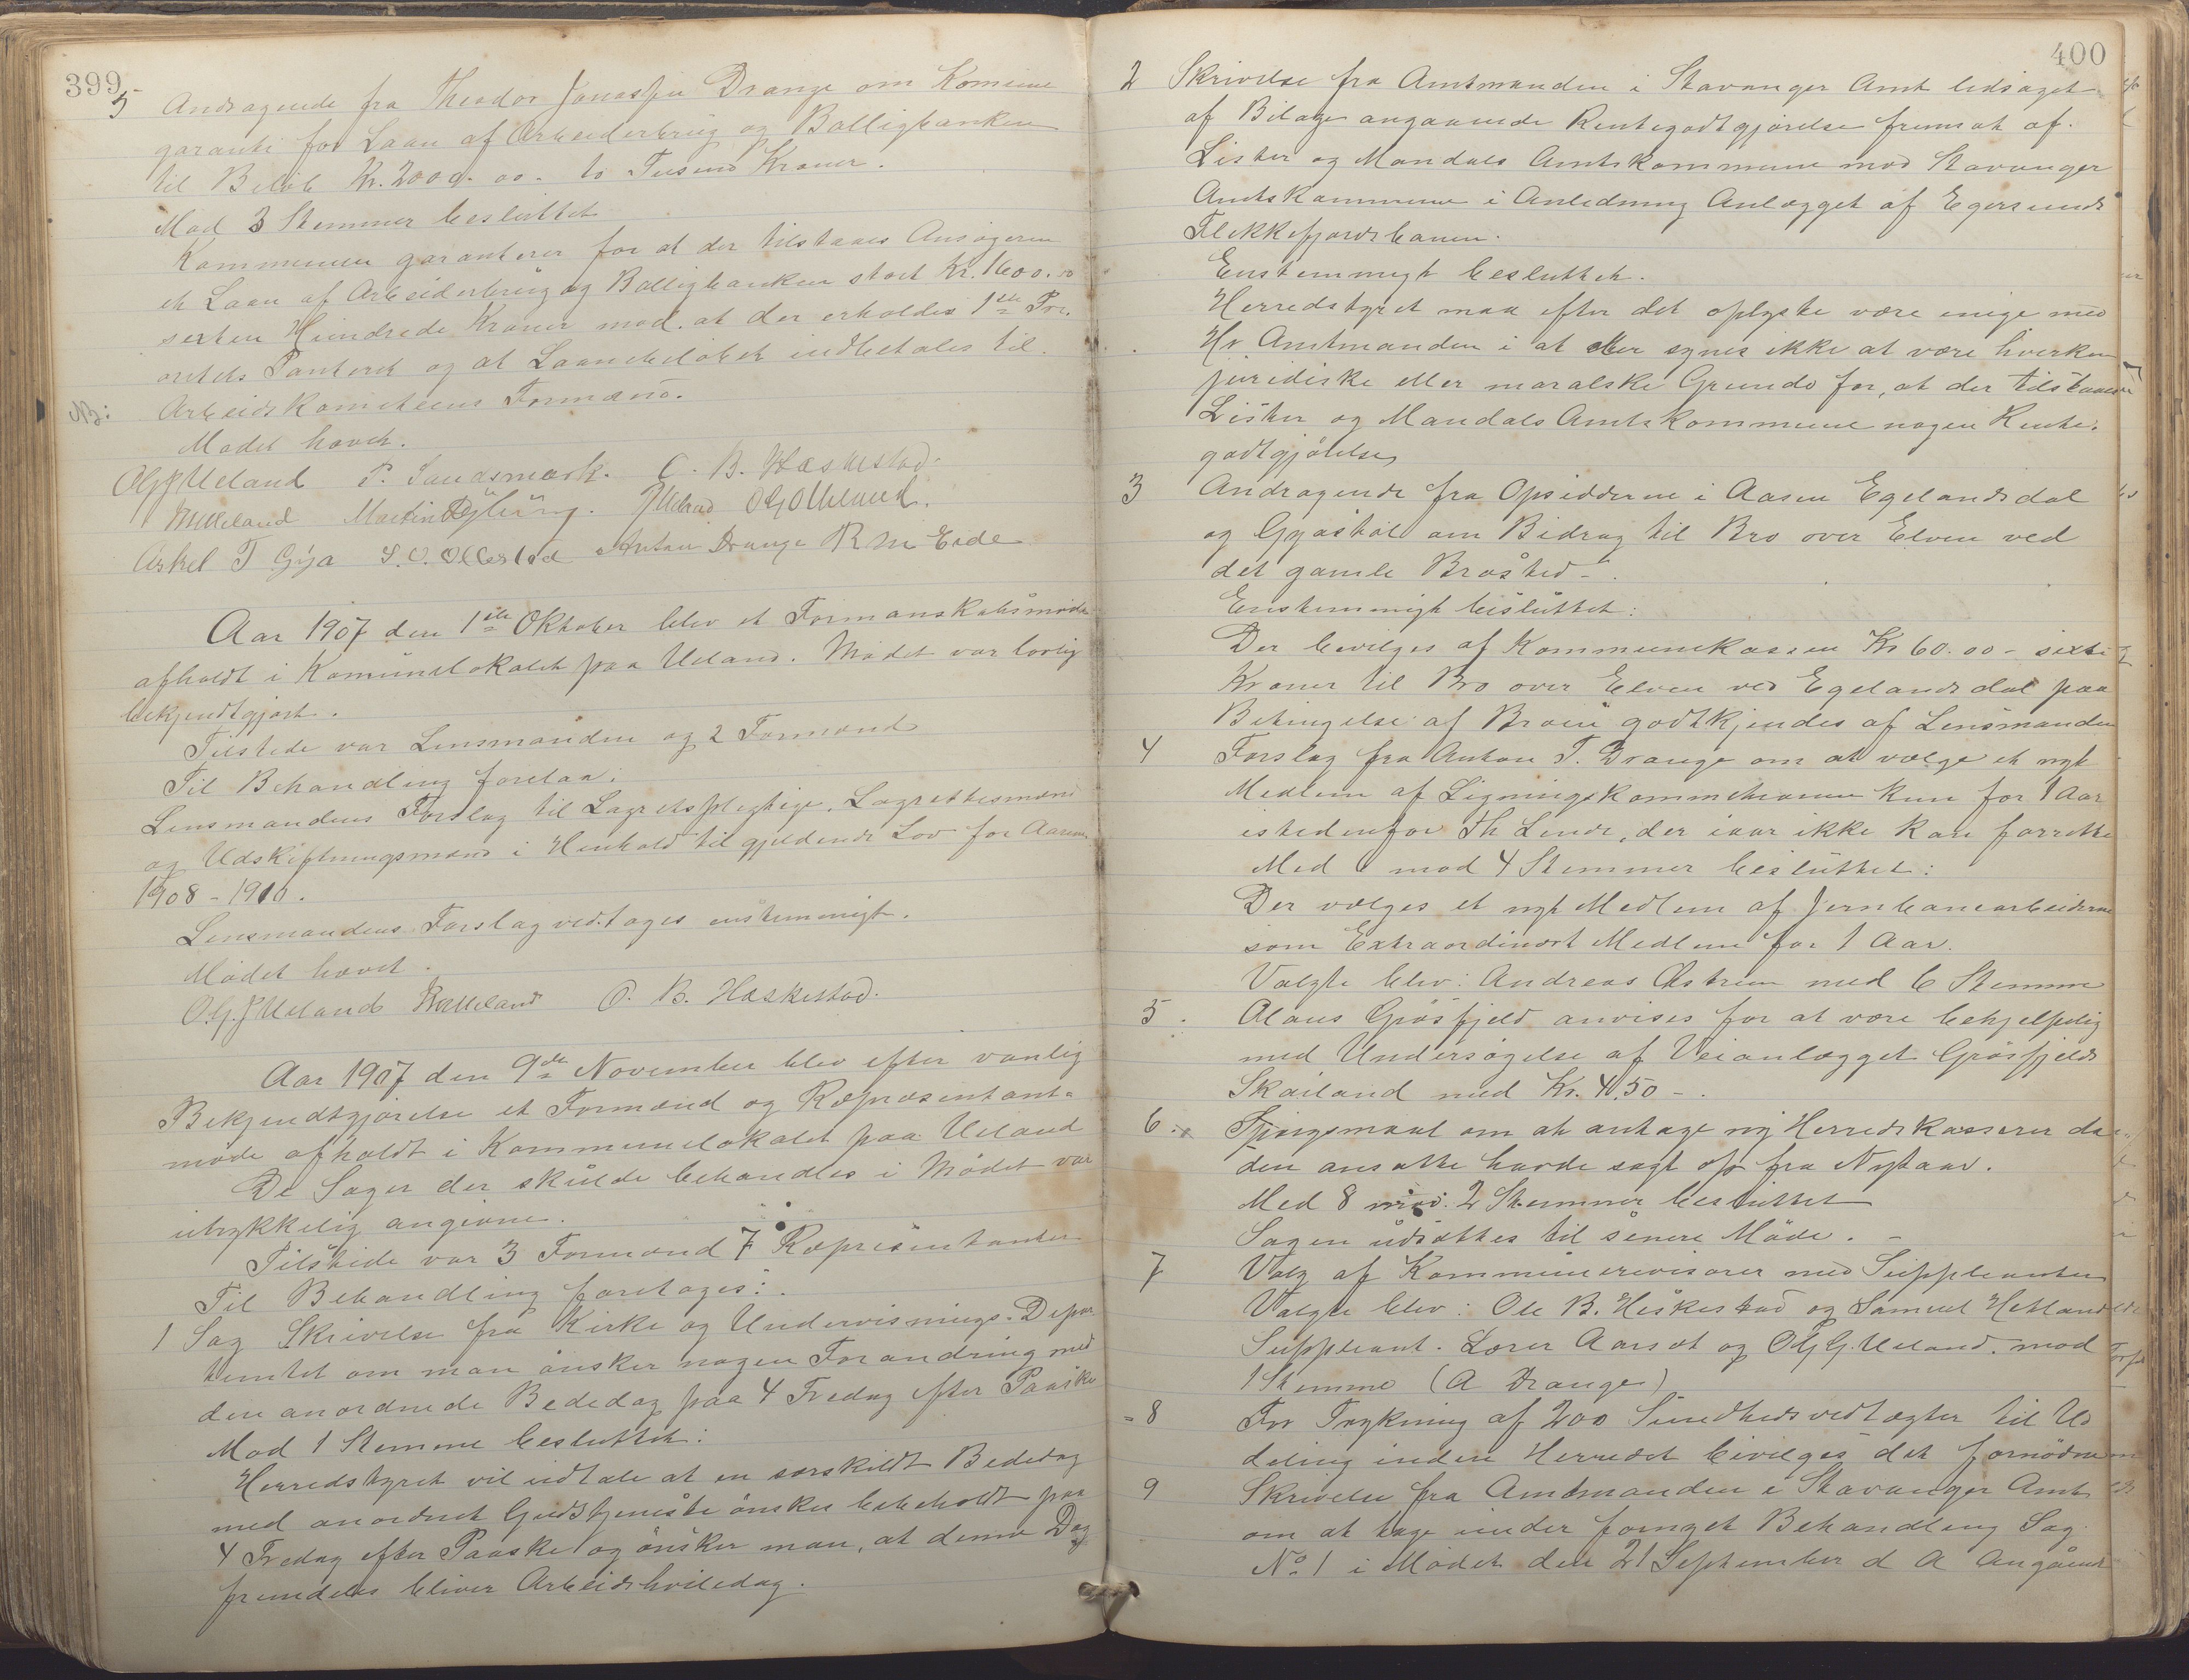 399
5 Andragende fra Theodor Jonassen Drange om Komüne
garanti for Laan af Arbeiderbrüg og Boligbanken
til Beløb Kr. 2000.00 - to Tusend Kroner.
Mod 3 Stemmer besluttet
Kommunen garanterer for at der tilstaaes Ansøgeren
et Laan af Arbeiderbrüg og Boligbanken stort Kr. 1600.00
sexten Hundrede Kroner mod. at der erholdes 1ste Pri-
oritets Panteret og at Laanebeløbet indbetales til
NB: Arbeidskomiteens Formand.
Mødet hævet.
O G J Ueland P. Sandsmark. O. B. Hæskestad.
Martin Røyland O G O Ueland.
Askel T Gya S. O. Ollestad Anton Drange R M Eide
Aar 1907 den 1ste Oktober blev et Formanskabsmøde
afholdt i Komünelokalet paa Ueland. Mødet var lovlig
bekjendtgjort.
Tilstede var Lensmanden og 2 Formænd
Til Behandling forelaa:
Lensmandens Forslag til Lagretspligtige. Lagrettesmænd
og Udskiftningsmænd i Henhold til gjeldende Lov for Aarene
1908 - 1910.
Lensmandens Forslag vedtages enstemmigt.
Mødet hævet.
O.G.J Ueland O. B. Hæskestad.
Aar 1907 den 9de November blev efter vanlig
Bekjendtgjørelse et Formænd og Repræsentant-
møde afholdt i Kommunelokalet paa Ueland
De Sager der skulde behandles i Mødet var
utrykkelig angivne.
Tilstede var 3 Formænd 7 Repræsentanter
Til Behandling foretages:
1 Sag Skrivelse fra Kirke og Undervisnings-Depar
temtet om man ønsker nogen Forandring med
den anordnede Bededag paa 4 Fredag efter Paaske
Mod 1 Stemme besluttet:
Herredstyret vil udtale at en særskildt Bededag
med anordnet Gudstjeneste ønskes beholdt paa
4 Fredag efter Paaske og ønsker man, at denne Dag
fremdeles bliver Arbeidshviledag.
400
2 Skrivelse fra Amtmanden i Stavanger Amt ledsaget
af Bilage angaaende Rentegodtgjørelse fremsat af
Lister og Mandals Amtskommune mod Stavanger
Amtskommune i Anledning Anlægget af Egersunds
Flekkefjordsbanen.
Enstemmigt besluttet.
Herredstyret maa efter det oplyste være enige med
Hr. Amtmanden i at der synes ikke at være hverken
juridiske eller moralske Grunde for, at der tilstaaes
Lister og Mandals Amtskommune nogen Rente-
godtgjørelse
3 Andragende fra Opsidderne i Aasen Egelandsdal
og Gyastøl om Bidrag til Bro over Elven ved
det gamle Brosted -
Enstemmigt besluttet:
Der bevilges af Kommunekassen Kr 60.00 - sixti
Kroner til Bro over Elven ved Egelandsdal paa
Betingelse af Broen godtkjendes af Lensmanden
4 Forslag fra Anton T. Drange om at vælge et nyt
Medlem af Ligningskommiteonen kun for 1 Aar
istedenfor Th Lende, der iaar ikke kan forrette
Med 6 mod 4 Stemmer besluttet:
Der vælges et nyt Medlem af Jernbanearbeiderne
som Extraordinært Medlem for 1 Aar.
Valgte blev: Andreas Østrem med 6 Stemme
5. Olaus Grøsfjeld anvises for at være behjelpelig
med Undersøgelse af Veianlægget Grøsfjeld
Skailand med Kr. 4.50 -
6. Spørgsmaal om at antage ny Herredskasserer da
den ansatte havde sagt op fra Nytaar.
Med 8 mod 2 Stemmer besluttet
Sagen udsættes til senere Møde. -
7 Valg af Kommunerevisorer med Suppleanter
Valgte blev: Ole B. Heskestad og Samuel Hetland
Suppleant. Lærer Aarsot og O G G. Ueland. mod
1 Stemme (A Drange)
8 For Trykning af 200 Sundhedsvedtægter til Ud
deling inden Herredet bevilges det fornødne
9 Skrivelse fra Amtmanden i Stavanger Amt
om at tage under fornyet Behandling Sag
No 1 i Mødet den 21 September d A Angående